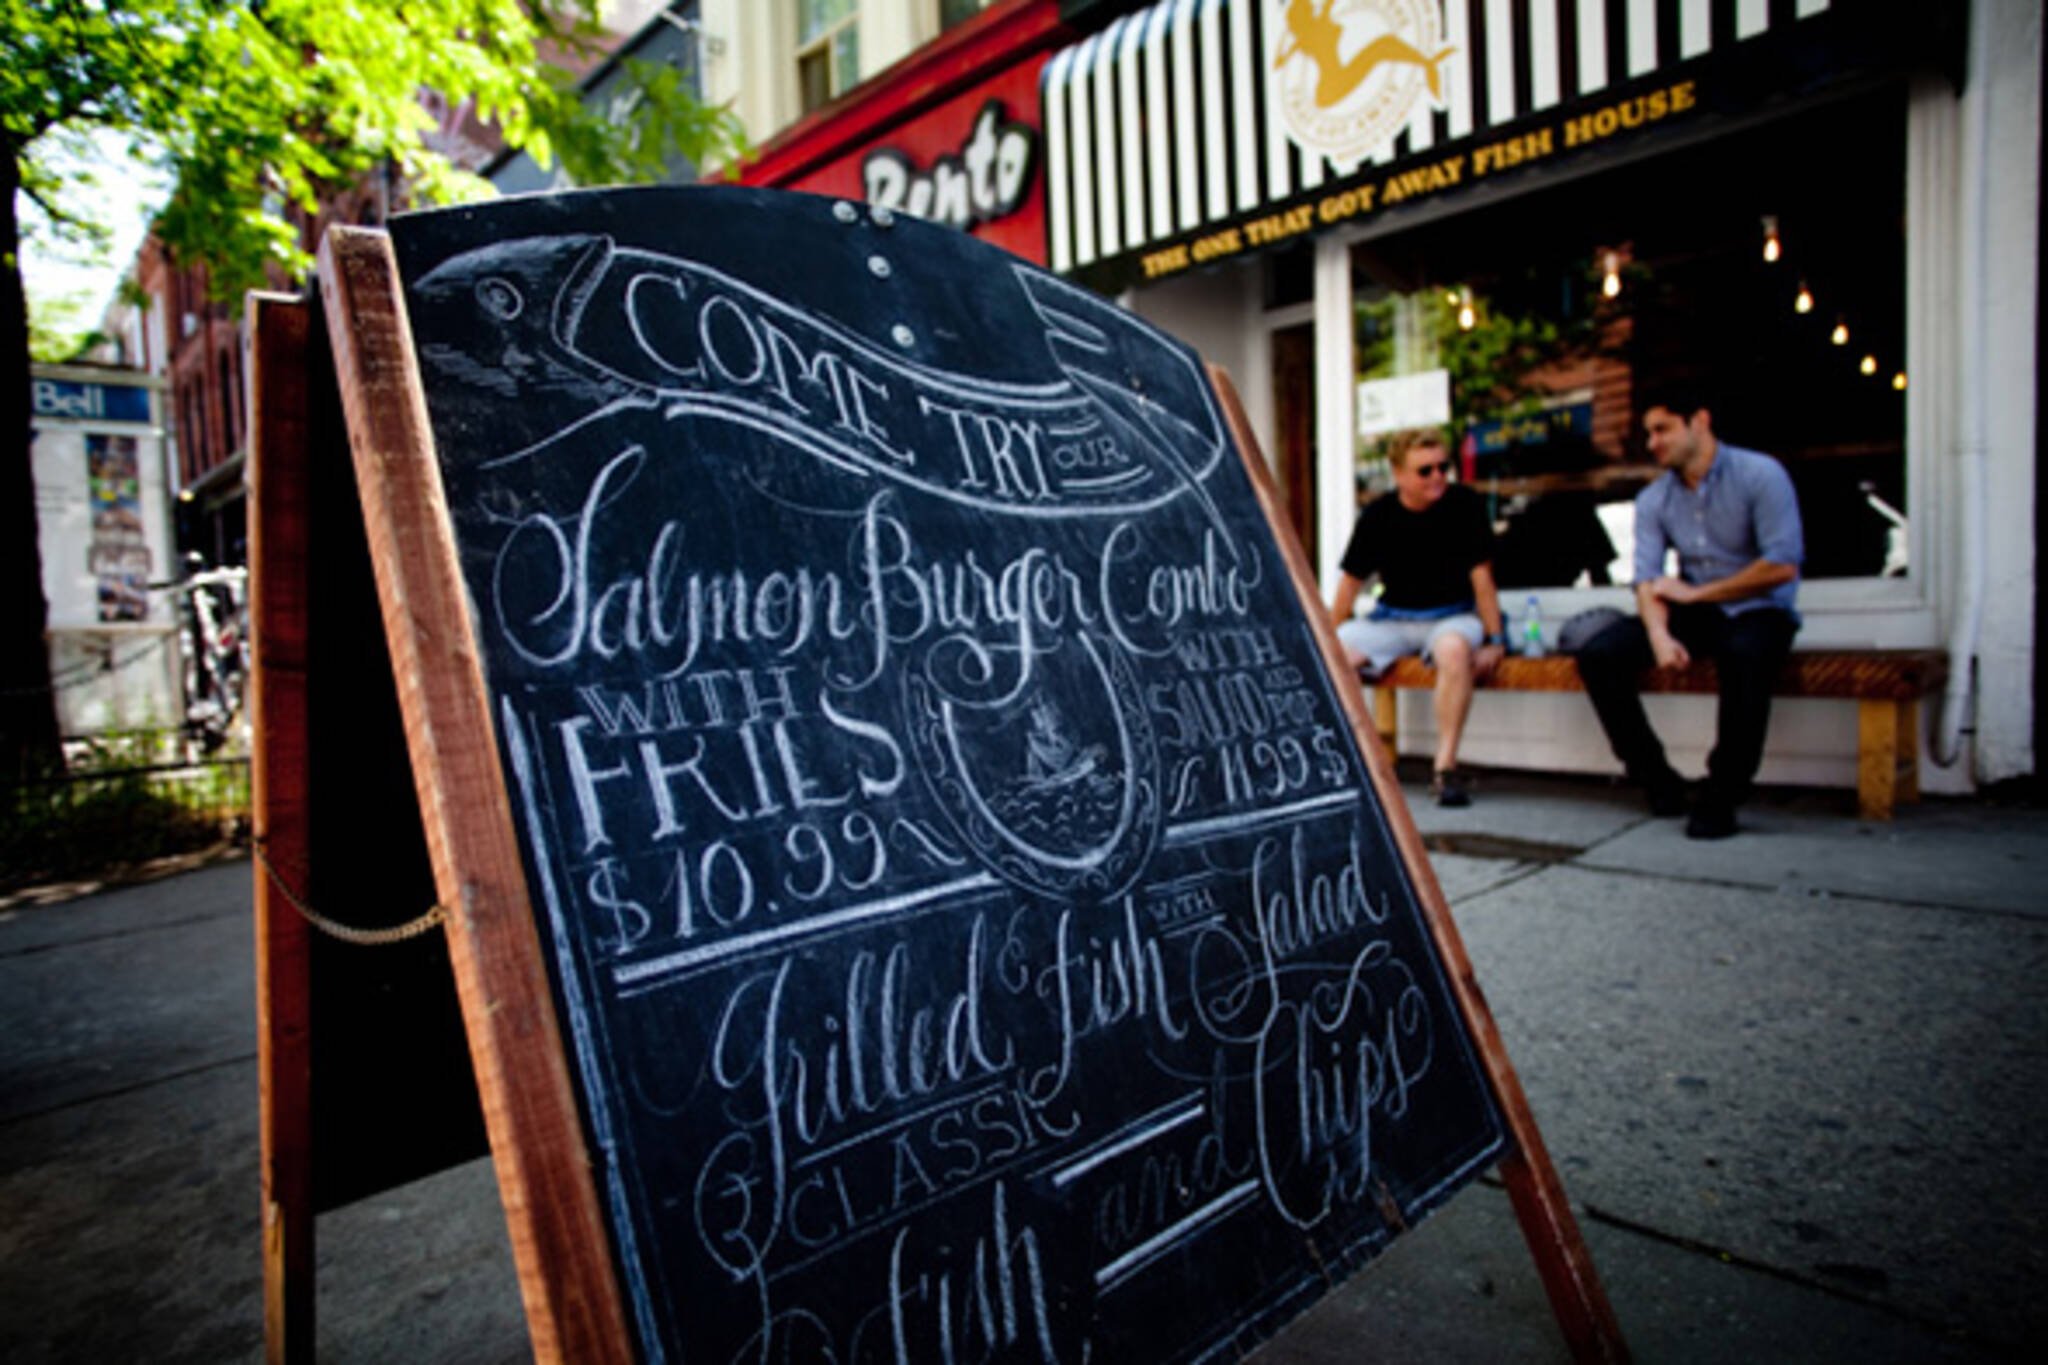 Bento
THE ONE THAT GOT AWAY FISH HOUSE
Bell
COME TRY OUR
Salmon Burger Combo
WITH
FRIES
$10.99
WITH
SALAD AND POP
11.99 $
Grilled Fish WITH Salad
CLASSIC
Fish and Chips